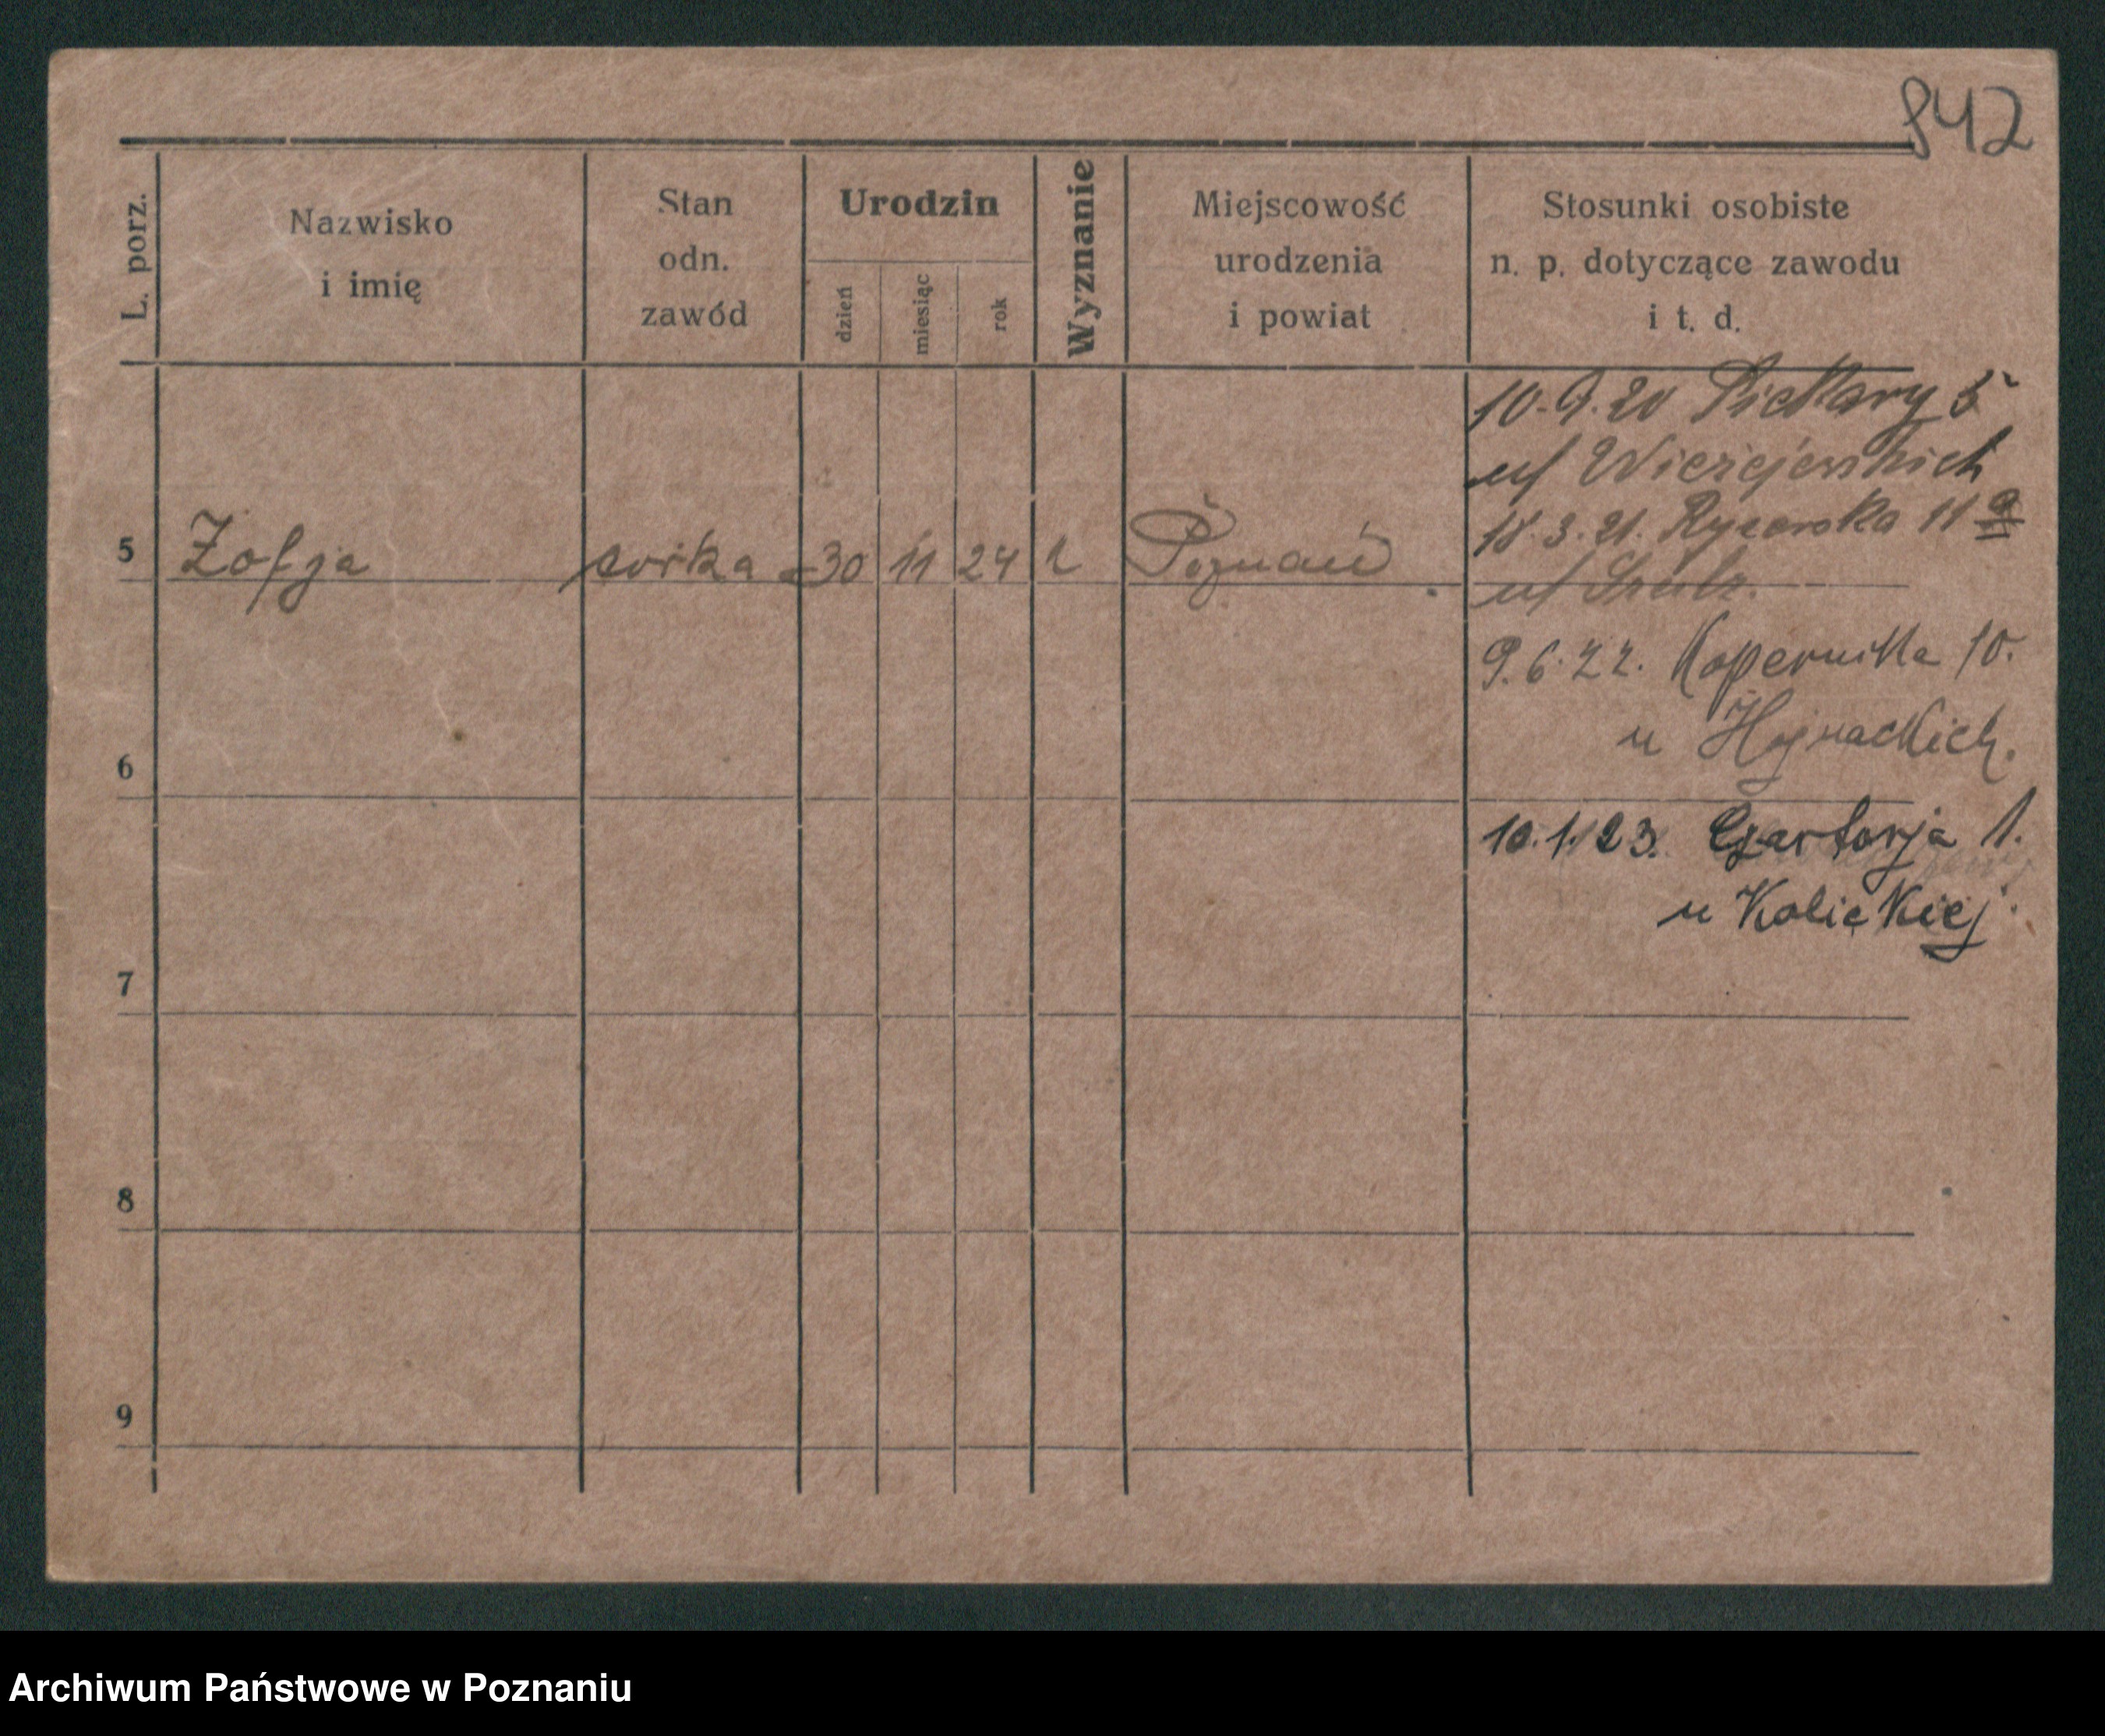 842
L. porz.
Nazwisko
i imię
Stan
odn.
zawód
Urodzin
dzień
miesiąc
rok
Wyznanie
Miejscowość
urodzenia
i powiat
Stosunki osobiste
n. p. dotyczące zawodu
i t. d.
10.9.20 Piekary 5
u/ Wierzejewskich
18.3.21. Rycerska 11 a
u/ Szulz.
5 Zofja córka 30 11 24 k Poznań
9.6.22. Kopernika 10.
u Hojnackich.
6
10.1.23. Czartorja 1.
u Kolickiej.
7
8
9
Archiwum Państwowe w Poznaniu